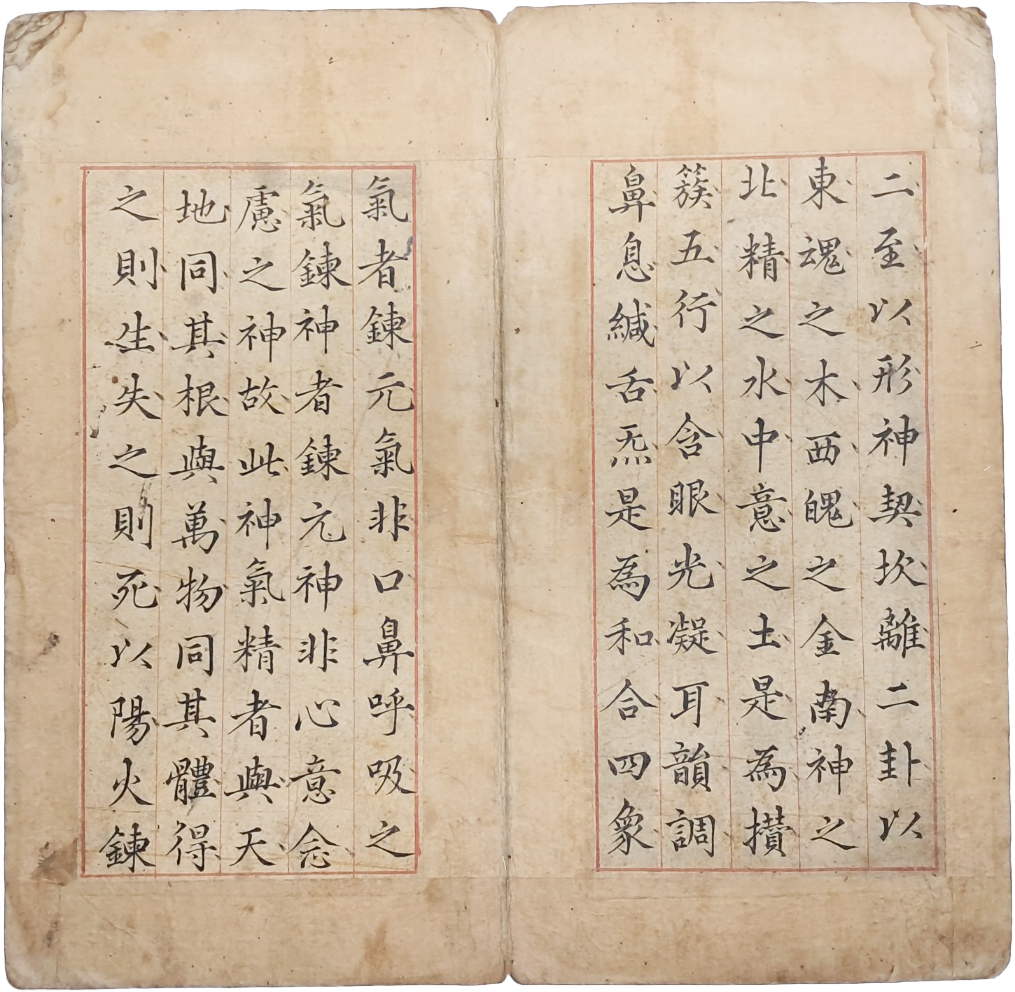 二至以形神契坎離二卦以
東魂之木西魄之金南神之
北精之水中意之土是為攢
簇五行以含眼光凝耳韻調
鼻息緘舌炁是為和合四象
氣者鍊元氣非口鼻呼吸之
氣鍊神者鍊元神非心意念
慮之神故此神氣精者與天
地同其根與萬物同其體得
之則生失之則死以陽火鍊